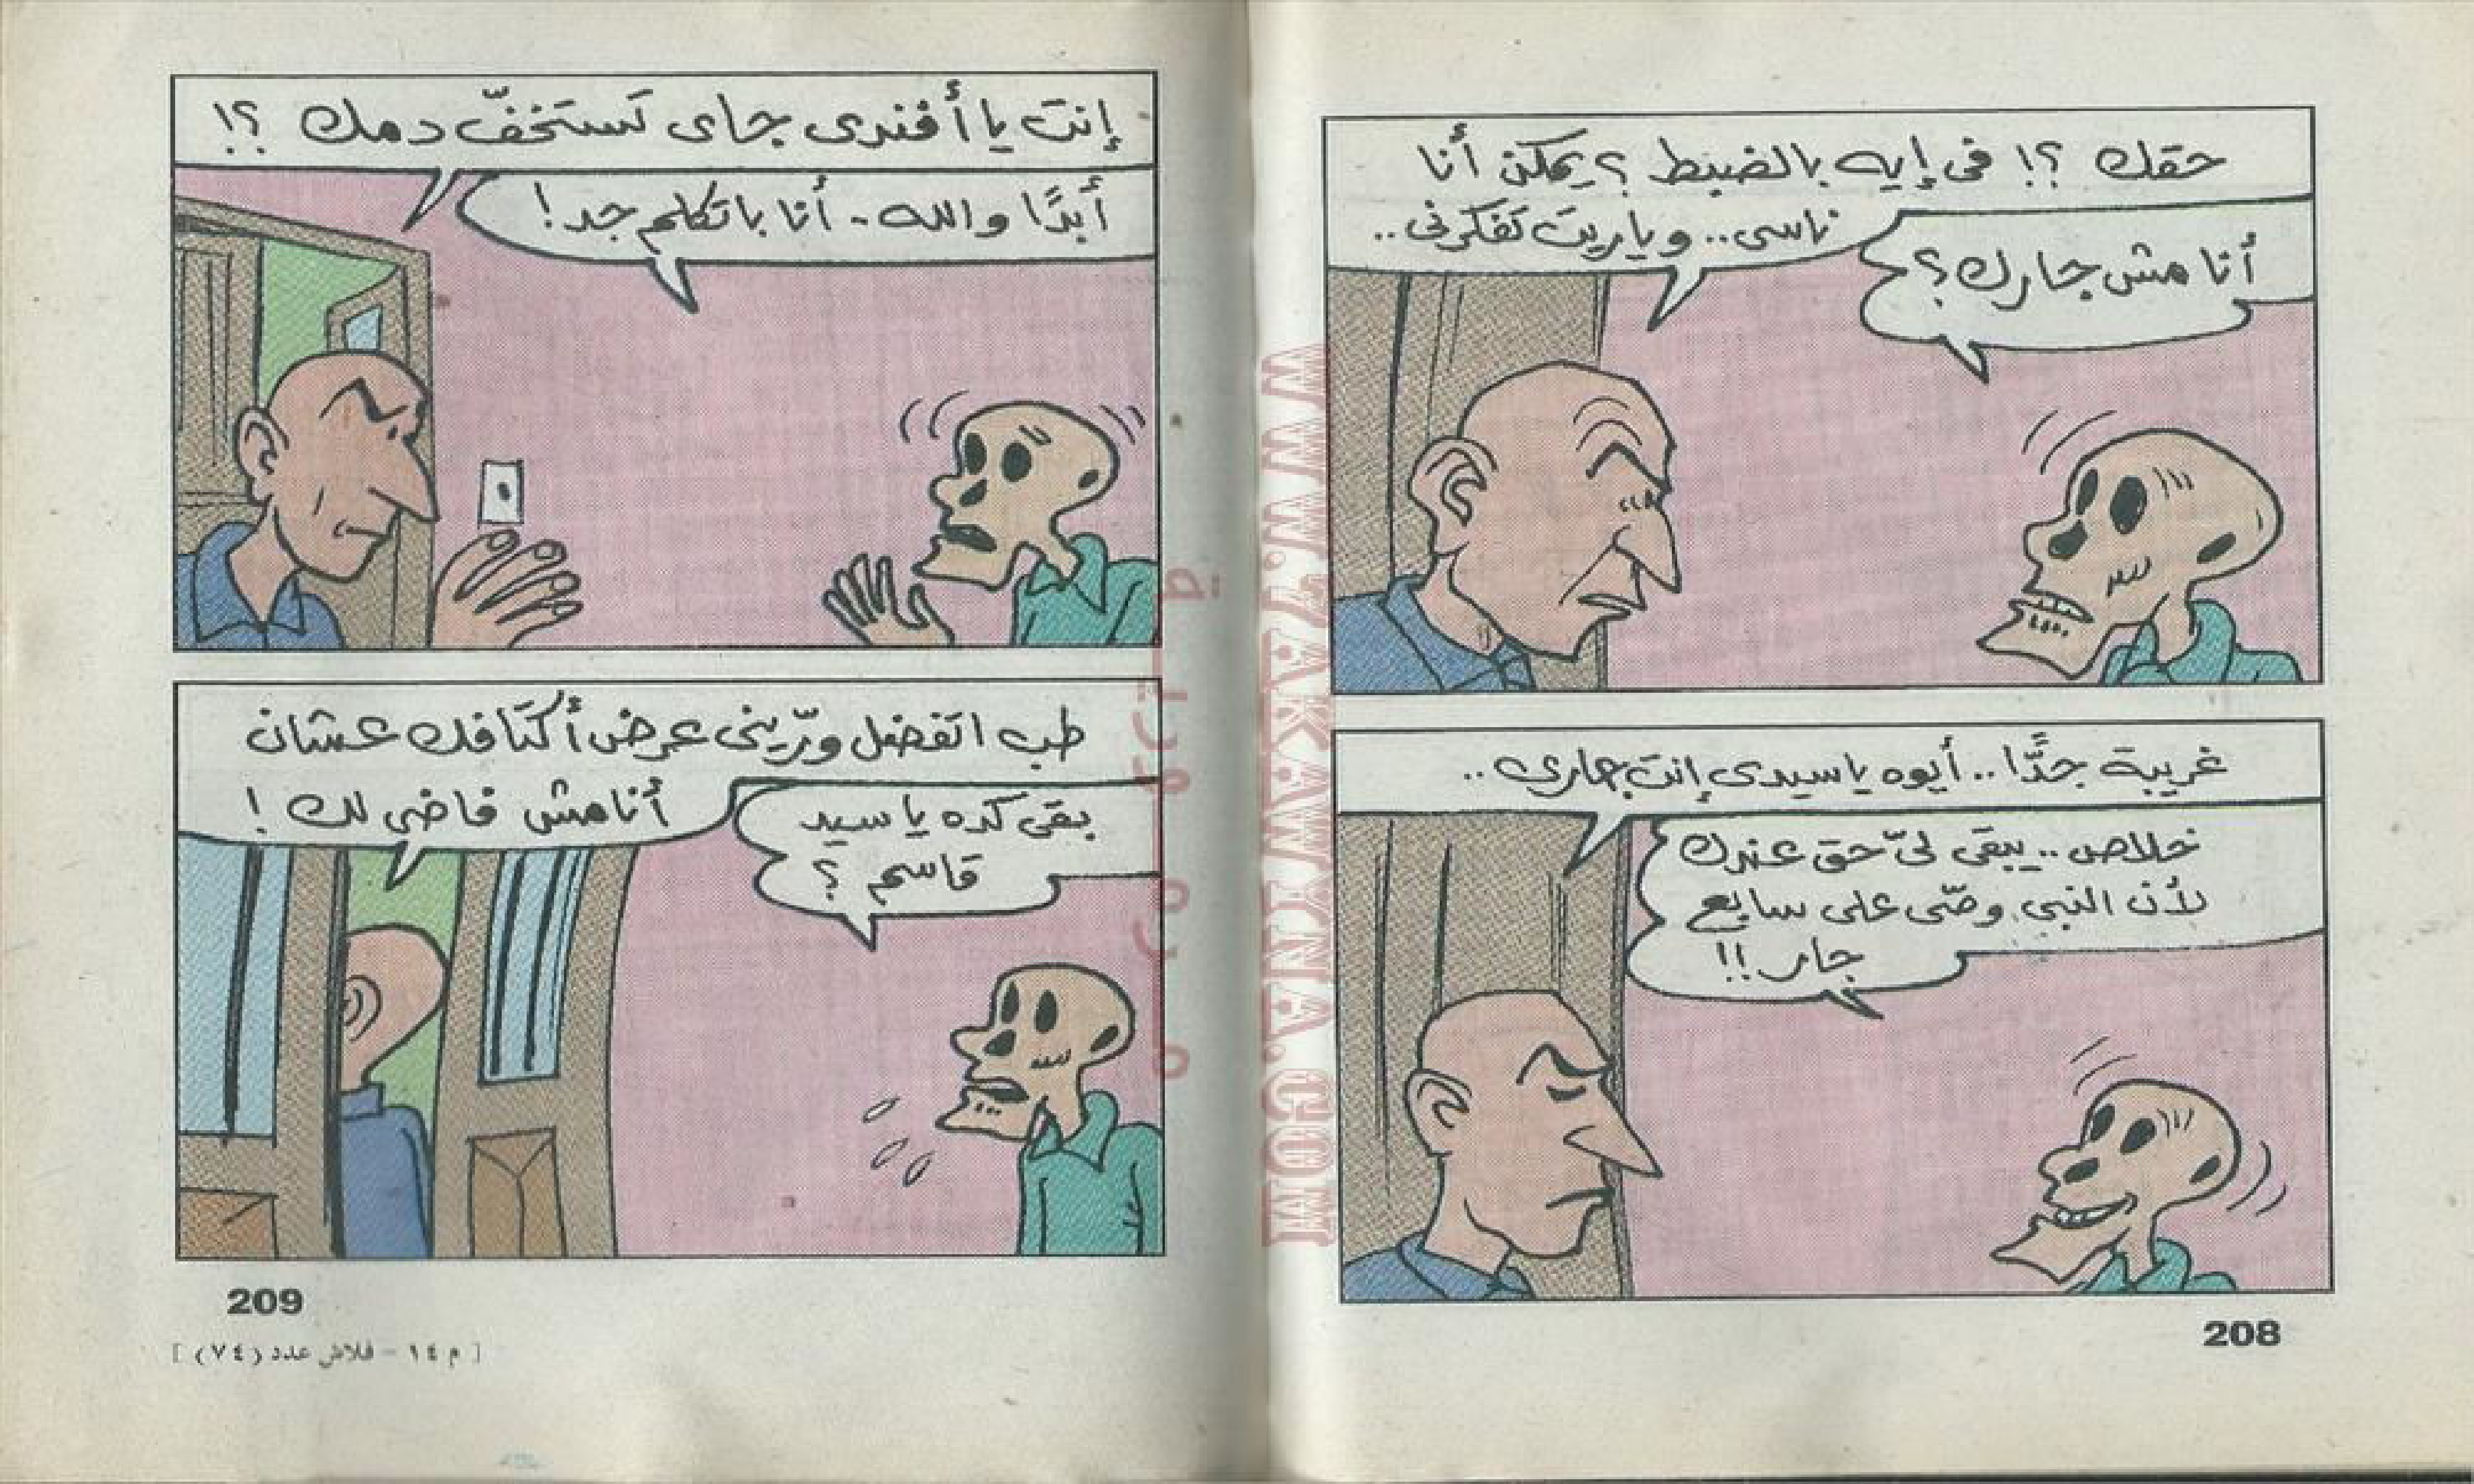 حقك ؟! فى إيه بالضبط ؟ يمكن أنا
ناسى.. وياريت تفكرنى..
أنا مش جارك ؟
غريبة جدًّا.. أيوه يا سيدى إنت جارى..
خلاص.. يبقى لىّ حق عندك
لأن النبى وصّى على سابع
جار !!
208
إنت يا أفندى جاى تستخفّ دمك ؟!
أبدًا والله - أنا باتكلم جد !
طب اتفضل ورّينى عرض أكتافك عشان
أنا مش فاضى لك !
بقى كده يا سيد
قاسم ؟
209
[ م ١٤ - فلاش عدد (٧٤) ]